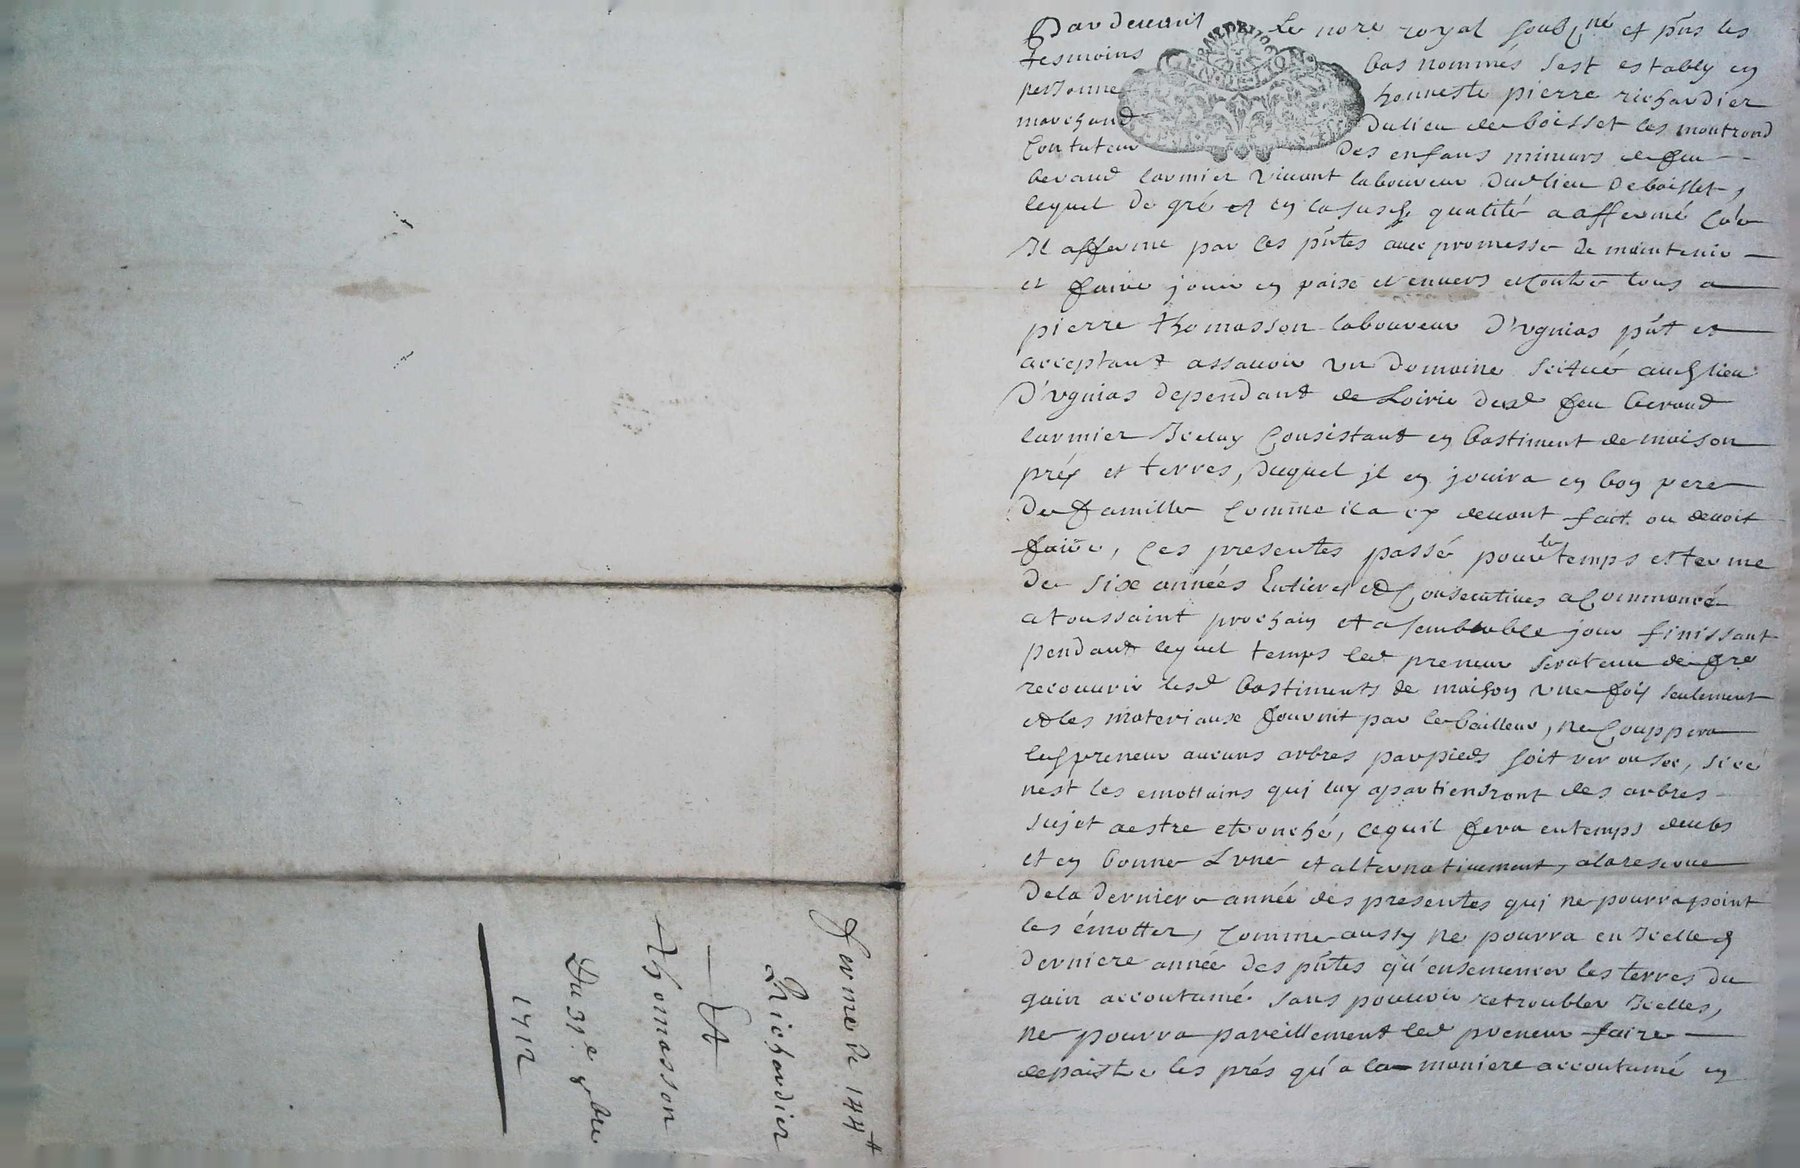 Pardevant Le nore royal soubzné et pnts les
tesmoins bas nommés sest estably en
personne honneste pierre richardier
marchand du lieu de boisset les montrond
Contuteur des enfans mineurs de feu
beraud larmier vivant laboureur dud lieu de boisset,
lequel de gré et en sa susd qualité a affermé Co'e
Il afferme par ces pntes avec promesse de maintenir
et faire jouir en paix et envers et Contre tous a
pierre thomasson laboureur D'ugnias pnt et
acceptant assavoir un Domaine scitué aud lieu
D'ugnias dependant de Loirie dud feu beraud
larmier Iceluy Consistant en bastiment de maison
préz et terres, duquel il en jouira en bon pere
De famille Comme il a cy devant fait ou devoit
faire, Ces presentes passé pour le temps et terme
De six années Entieres et Consecutives a Commancé
a toussaint prochain et a semblable jour finissant
pendant lequel temps led preneur sera tenu de fre
recouvrir lesd bastiments de maison une fois seulement
et les materiaux fournit par le bailleur, ne Couppera
led preneur aucuns arbres par pieds soit ver ou sec, si ce
nest les emottains qui luy apartiendront des arbres
sujet a estre etronché, ce quil fera en temps deubs
et en bonne Lune et alternativement, a la reserve
De la derniere année des presentes qui ne pourra point
les émotter, Comme aussy ne pourra en Icelle
derniere année des pntes qu'ensemencer les terres du
gain accoutumé sans pouvoir retroubler Icelles,
ne pourra pareillement led preneur faire
depaistre les prés qu'a la maniere accoutumé en
ferme de 144#
Richardier
Et
Thomasson
Du 31e 8bre
1712